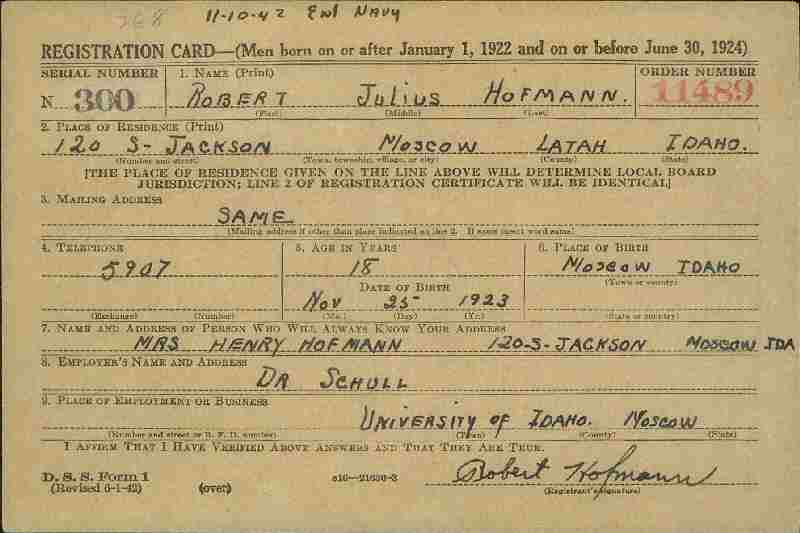 268 11-10-42 Enl Navy
REGISTRATION CARD—(Men born on or after January 1, 1922 and on or before June 30, 1924)
SERIAL NUMBER 1. NAME (Print) ORDER NUMBER
N 300 ROBERT JULIUS HOFMANN. 11489
(First) (Middle) (Last)
2. PLACE OF RESIDENCE (Print)
120 S- JACKSON MOSCOW LATAH IDAHO.
(Number and street) (Town, township, village, or city) (County) (State)
[THE PLACE OF RESIDENCE GIVEN ON THE LINE ABOVE WILL DETERMINE LOCAL BOARD
JURISDICTION; LINE 2 OF REGISTRATION CERTIFICATE WILL BE IDENTICAL]
3. MAILING ADDRESS
SAME
(Mailing address if other than place indicated on line 2. If same insert word same)
4. TELEPHONE 5. AGE IN YEARS 6. PLACE OF BIRTH
5907 18 MOSCOW IDAHO
(Town or county)
DATE OF BIRTH
Nov 25 1923
(Exchange) (Number) (Mo.) (Day) (Yr.) (State or country)
7. NAME AND ADDRESS OF PERSON WHO WILL ALWAYS KNOW YOUR ADDRESS
MRS HENRY HOFMANN 120-S-JACKSON MOSCOW IDA
8. EMPLOYER'S NAME AND ADDRESS
DR SCHULL
9. PLACE OF EMPLOYMENT OR BUSINESS
UNIVERSITY OF IDAHO. MOSCOW
(Number and street or R. F. D. number) (Town) (County) (State)
I AFFIRM THAT I HAVE VERIFIED ABOVE ANSWERS AND THAT THEY ARE TRUE.
D. S. S. Form 1
(Revised 6-1-42) (over) 16—21630-3 Robert Hofmann
(Registrant's signature)